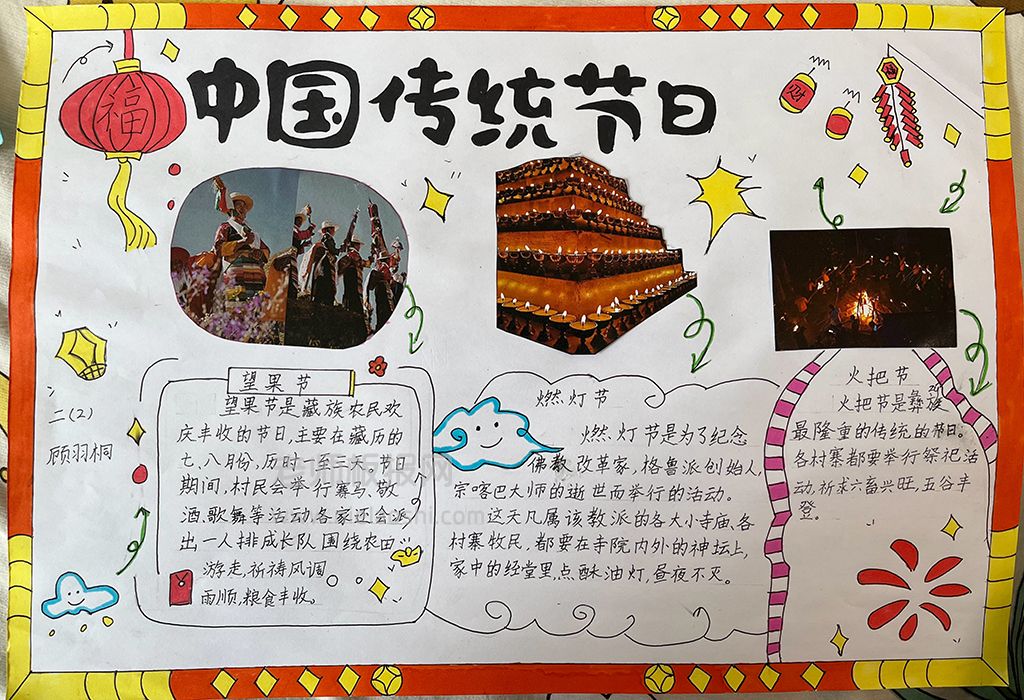 中国传统节日
福
财
二(2)
顾羽桐
望果节
望果节是藏族农民欢
庆丰收的节日,主要在藏历的
七、八月份,历时一至三天。节日
期间,村民会举行赛马、敬
酒、歌舞等活动,各家还会派
出一人排成长队围绕农田
游走,祈祷风调
雨顺,粮食丰收。
燃灯节
燃灯节是为了纪念
佛教改革家,格鲁派创始人,
宗喀巴大师的逝世而举行的活动。
这天凡属该教派的各大小寺庙、各
村寨牧民,都要在寺院内外的神坛上,
家中的经堂里点酥油灯,昼夜不灭。
火把节
火把节是彝族
最隆重的传统的节日。
各村寨都要举行祭祀活
动,祈求六畜兴旺,五谷丰
登。